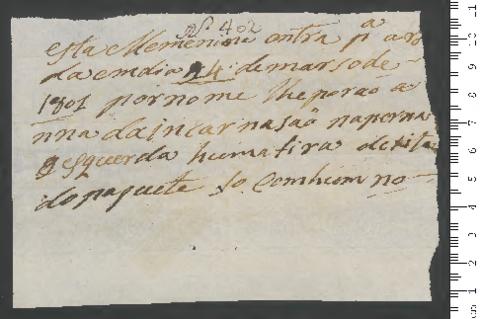 Nº 402
esta Memenina entra pª a ro
da em dia 24 de marso de
1801 por nome lhe porão a
nna da incarnasaõ na perna
esquerda huma tira de fita
do paquete so com hum no